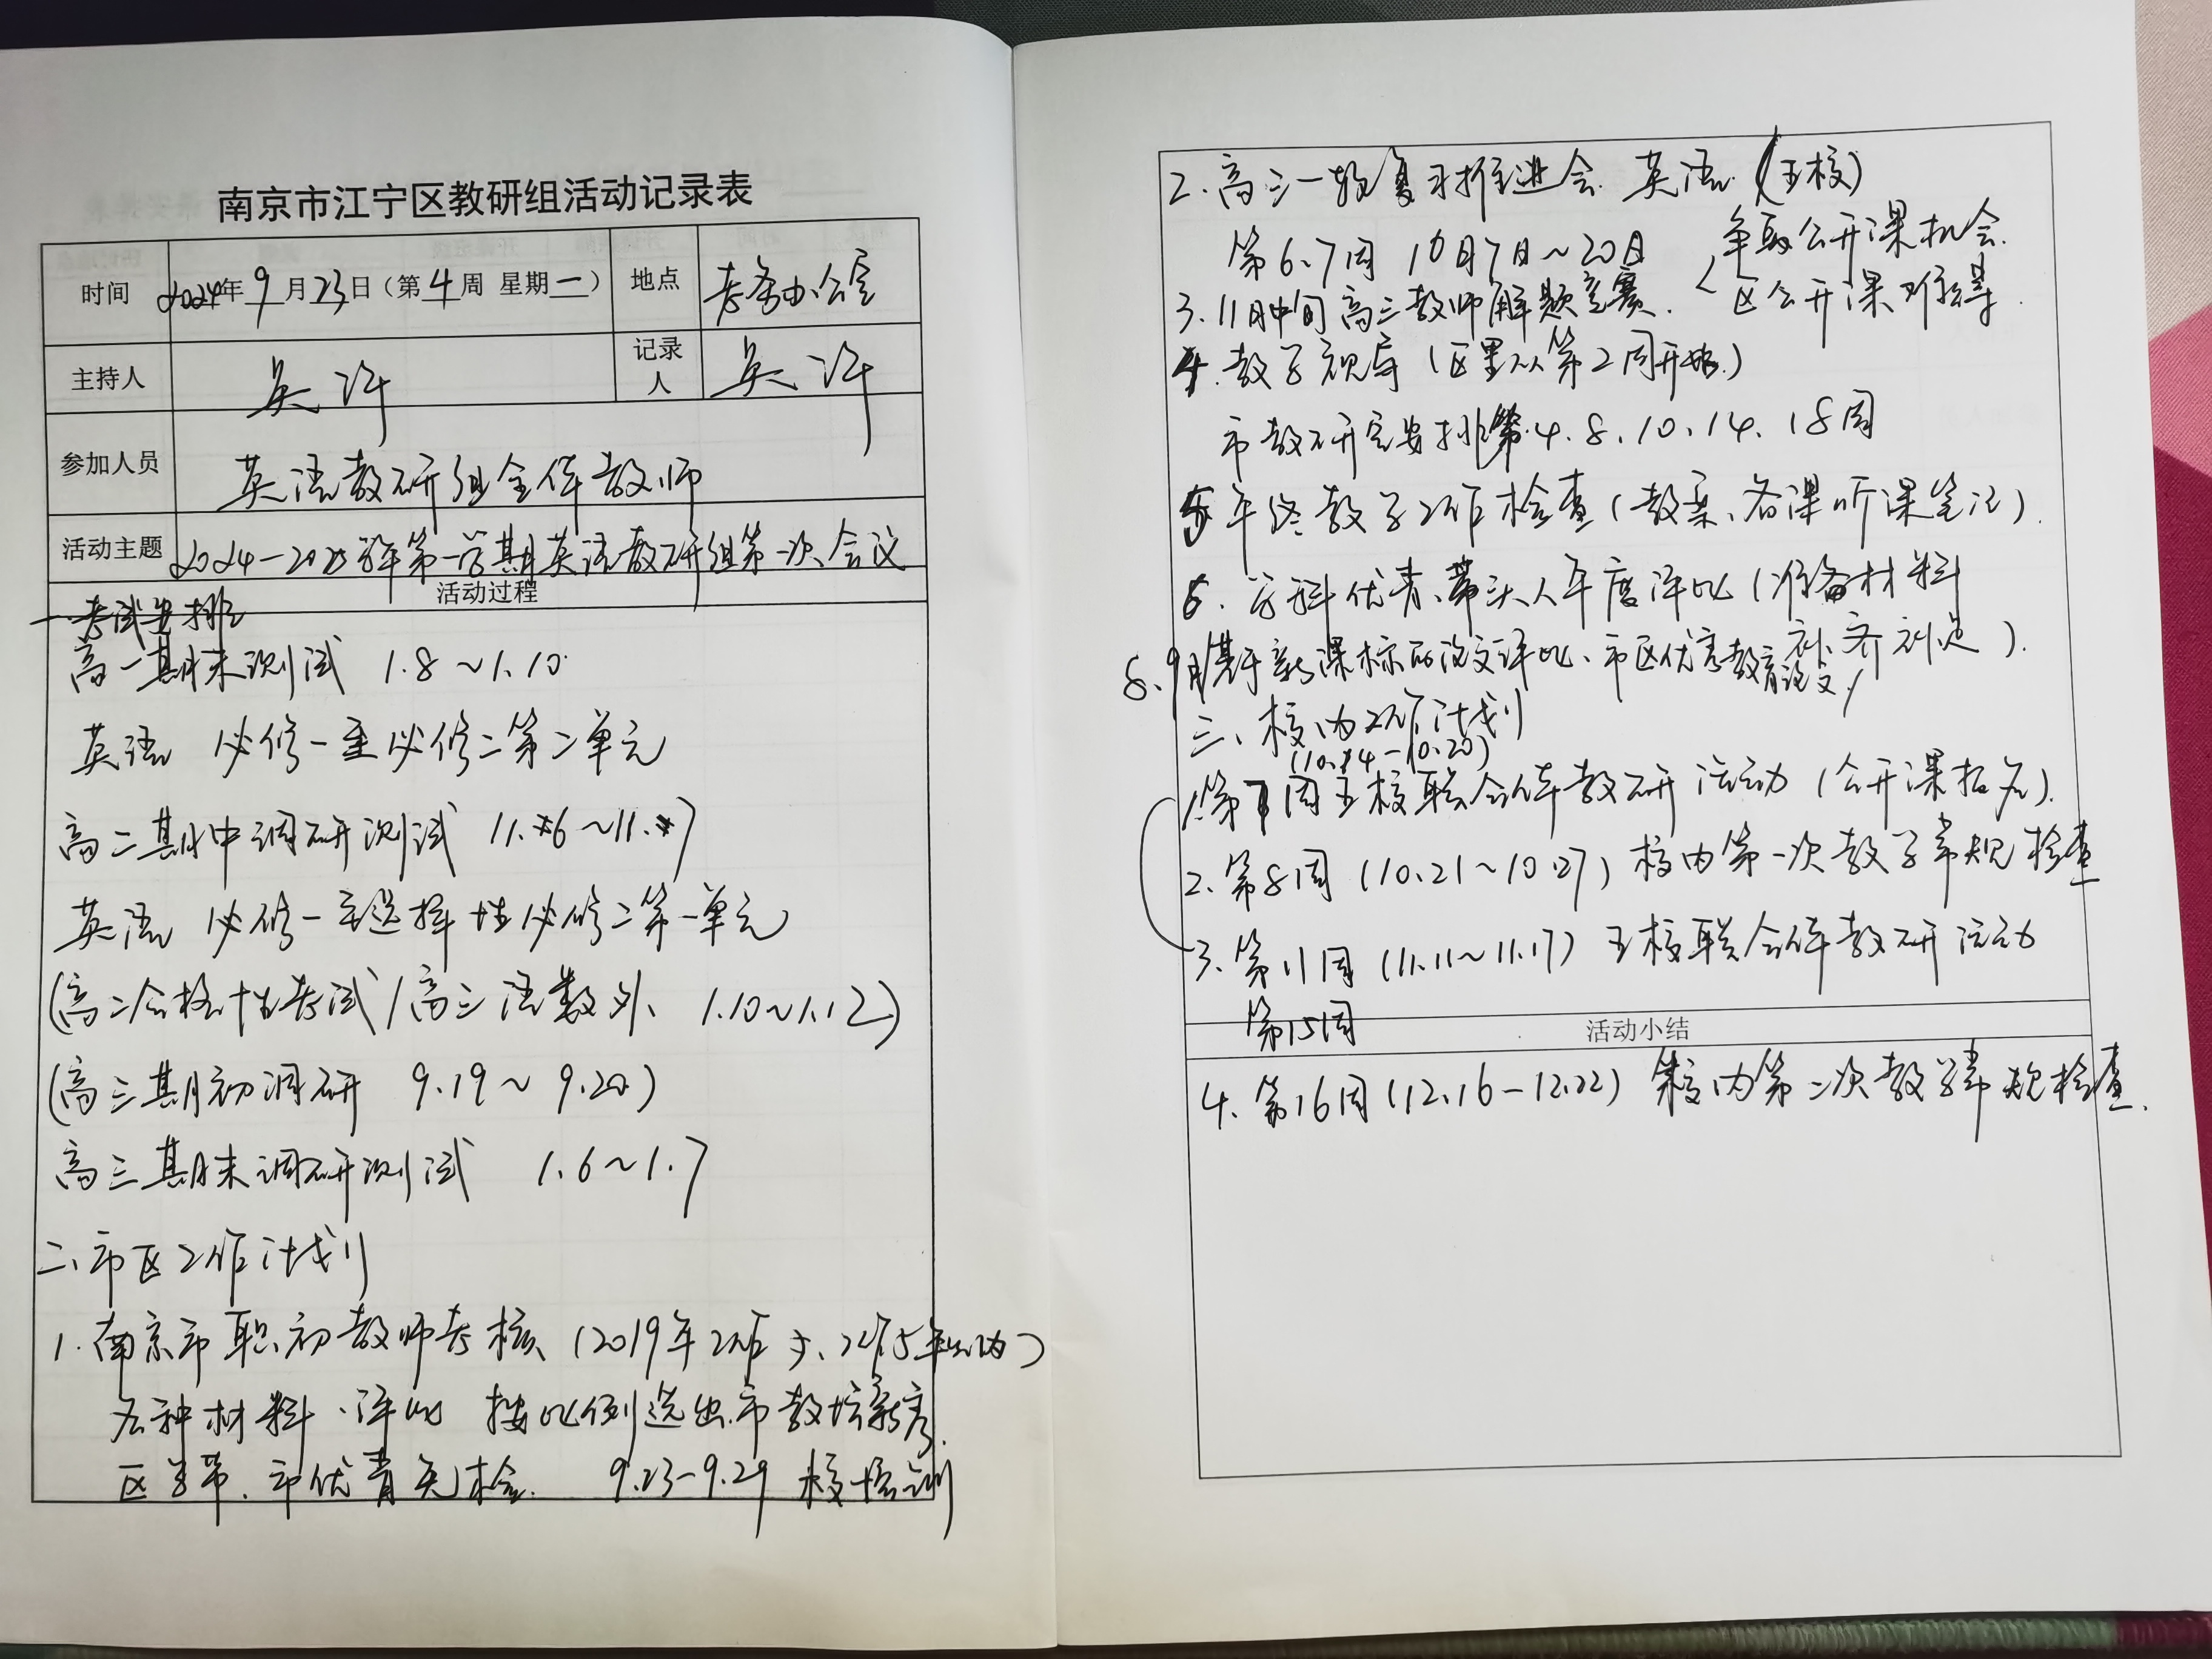 南京市江宁区教研组活动记录表
时间 2024年9月23日（第4周 星期一） 地点 考务办公室
主持人 吴许 记录人 吴许
参加人员 英语教研组全体教师
活动主题 2024-2025学年第一学期英语教研组第一次会议
活动过程
一.考试安排
高一期末测试 1.8~1.10
英语 必修一至必修二第二单元
高二期中调研测试 11.6~11.7
英语 必修一至选择性必修二第一单元
(高二合格性考试/高三语数外、1.10~1.12)
(高三期初调研 9.19~9.20)
高三期末调研测试 1.6~1.7
二、市区工作计划
1.南京市职初教师考核(2019年工作 工作5年以内)
各种材料、评比 按比例选出市教坛新秀.
区学带、市优青 9.23-9.29 校培训
2.高三一轮复习推进会 英语(五校)
第6、7周 10月7日~20日
争取公开课机会
区公开课难得.
3.11月中旬高三教师解题竞赛.
4.教学视导(区里从第2周开始)
市教研室安排第4.8.10.14.18周
5年终教学工作检查(教案、备课听课笔记).
6.学科优青、带头人年度评比(准备材料
补齐补足).
8、9月基于新课标的论文评比、市区优秀教育论文
三、校内工作计划
(10.14-10.20)
1.第7周五校联合体教研活动(公开课报名).
2.第8周(10.21~10.27)校内第一次教学常规检查
3.第11周(11.11~11.17)五校联合体教研活动
第15周
活动小结
4.第16周(12.16-12.22)校内第二次教学常规检查.